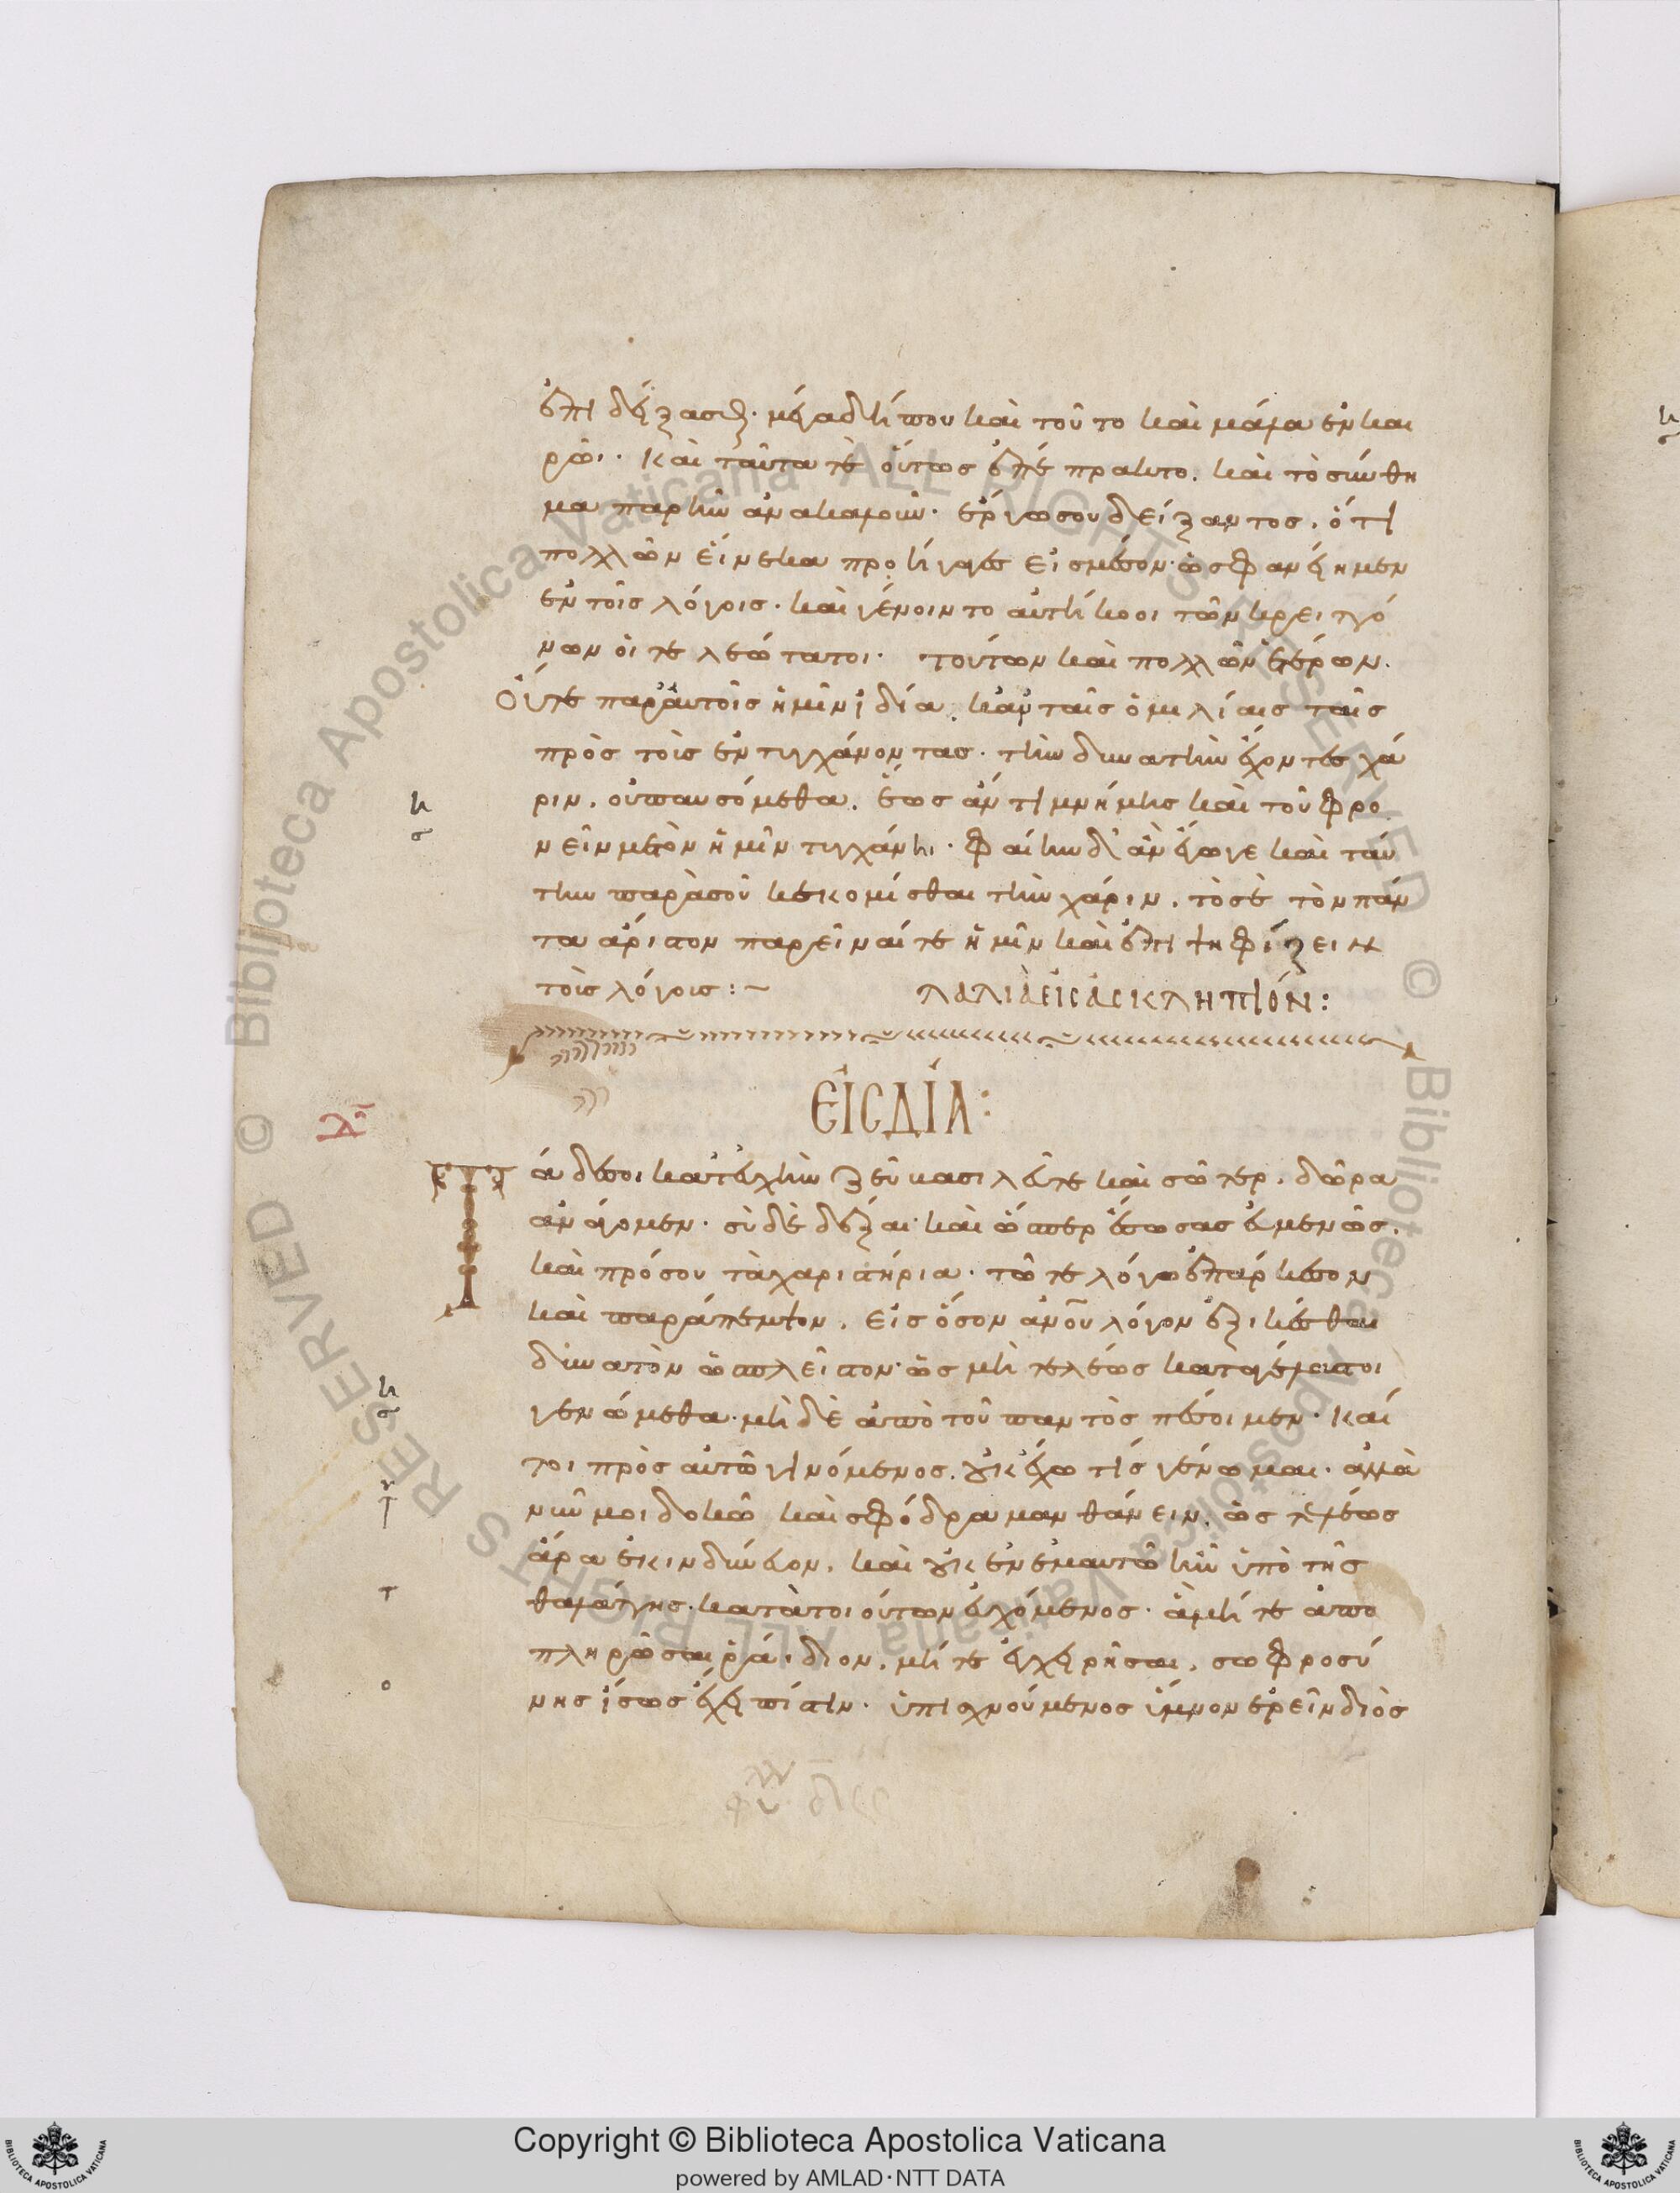 ἐπιδείξασιν· μέγα δή που καὶ τοῦτο καὶ μάλα ἐν και
ρῶι· καὶ ταῦτά τε οὕτως ἐπέπρακτο. καὶ τὸ σύνθη
μα παρῆν ἀνακαλοῦν· ἔργωι σου δείξαντος, ὅτι
πολλῶν εἵνεκα προήγαγες εἰς μέσον· ὡς φανείημεν
ἐν τοῖς λόγοις· καὶ γένοιντο αὐτήκοοι τῶν κρειττό
νων οἱ τελεώτατοι· τούτων καὶ πολλῶν ἑτέρων.
Οὔτε παρ' αὐτοῖς ἡμῖν ἰδία, κἀν ταῖς ὁμιλίαις ταῖς
πρὸς τοὺς ἐντυγχάνοντας· τὴν δυνατὴν ἔχοντες χά
ριν, οὐ παυσόμεθα, ἕως ἄν τι μνήμης καὶ τοῦ φρο
νεῖν μετὸν ἡμῖν τυγχάνηι· φαίην δ' ἂν ἔγωγε καὶ ταύ
την παρὰ σοῦ κεκομίσθαι τὴν χάριν, τὸ σὲ τὸν πάν
τα ἄριστον παρεῖναί τε ἡμῖν καὶ ἐπιψηφίζειν
τοῖς λόγοις:~ ΛΑΛΙᾺ ΕἸΣ ἈΣΚΛΗΠΙΌΝ:
ΕἸΣ ΔΊΑ:
λ
Τάδε σοι κατ' εὐχὴν ζεῦ βασιλεῦ τε καὶ σῶτερ, δῶρα
ἀνάγομεν· σὺ δὲ δέξαι· καὶ ὥσπερ ἔσωσας εὐμενῶς.
καὶ πρόσου τὰ χαριστήρια· τῶ τε λόγω ἐπάρκεσον
καὶ παράπεμψον, εἰς ὅσον ἀνοῦ λόγον ἐξικέσθαι
δυνατὸν ὡς πλεῖστον· ὡς μὴ τελέως καταγέλαστοι
γενώμεθα· μὴ δὲ ἀπὸ τοῦ παντὸς πέσοιμεν· καί
τοι πρὸς αὐτῶ γινόμενος, οὐκ ἔχω τίς γένωμαι· ἀλλὰ
νῦν μοι δοκῶ καὶ σφόδρα μανθάνειν, ὡς τελέως
ἄρα ἐκινδύνευον, καὶ οὐκ ἐν ἐμαυτῶ ἦν ὑπὸ τῆς
θαλάττης, κατὰ τοιούτων εὐχόμενος· ἃ μή τε ἀπο
πληρῶσαι ῥάιδιον, μή τε ἐγχειρῆσαι, σωφροσύ
νης ἴσως ἔχει πίστιν· ὑπισχνούμενος ὕμνον ἐρεῖν διὸς
Copyright © Biblioteca Apostolica Vaticana
powered by AMLAD·NTT DATA